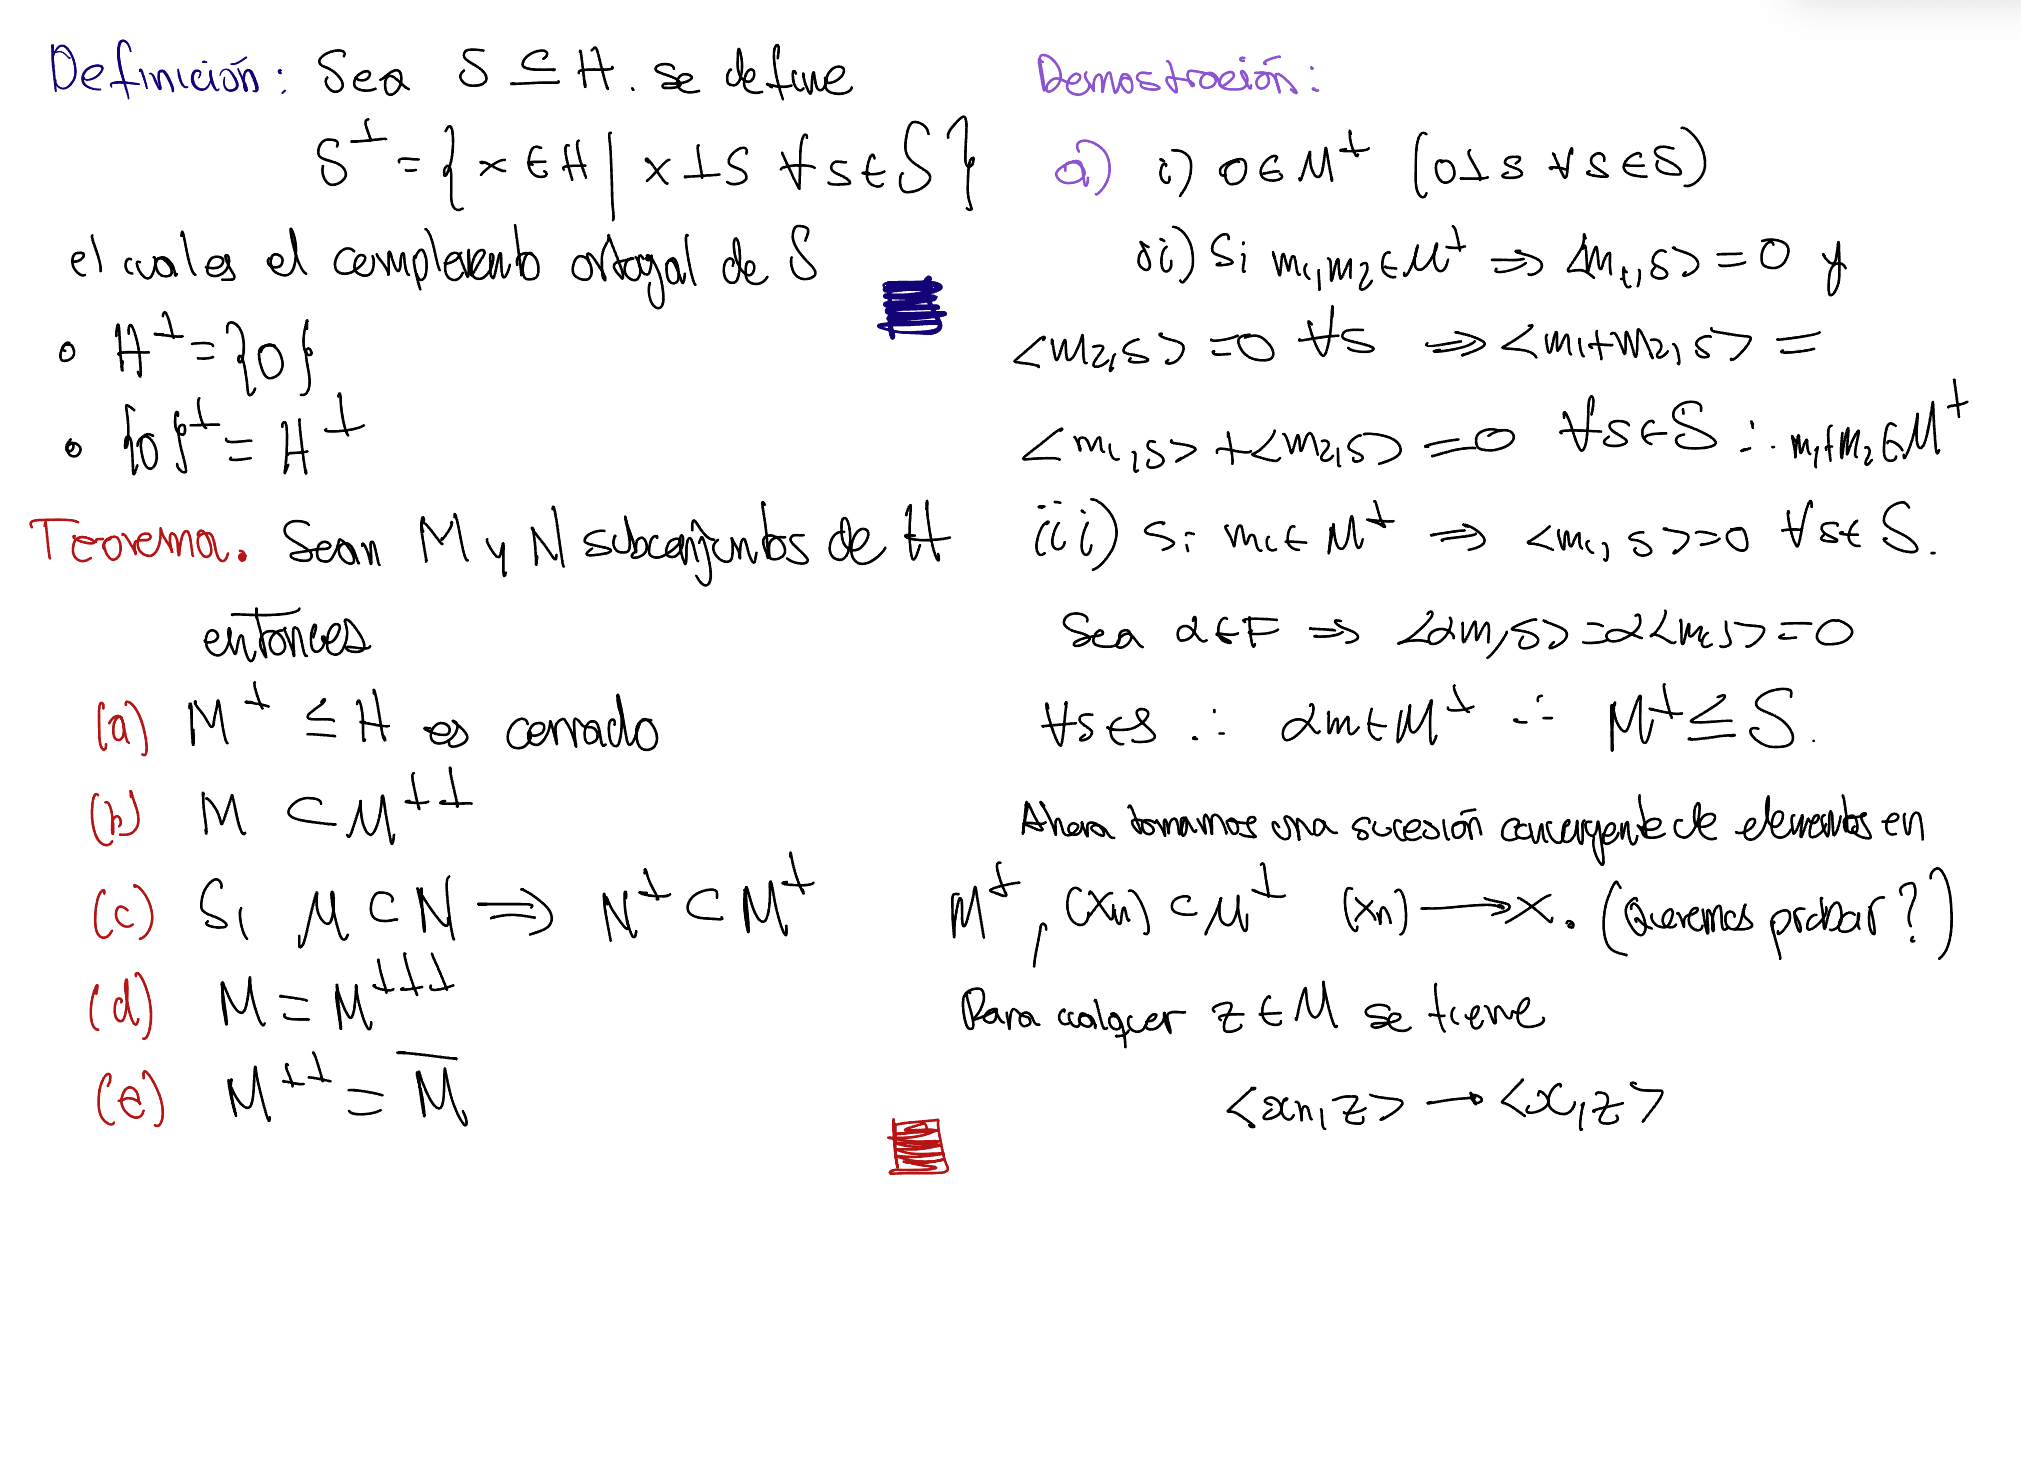 Definición: Sea S ⊆ H. se define
S^⊥ = { x ∈ H | x ⊥ s ∀ s ∈ S }
el cual es el complemento ortogal de S
• H^⊥ = {0}
• {0}^⊥ = H^⊥
Teorema. Sean M y N subconjuntos de H
entonces
(a) M^⊥ ≤ H es cerrado
(b) M ⊂ M^⊥⊥
(c) Si M ⊂ N ⟹ N^⊥ ⊂ M^⊥
(d) M = M^⊥⊥⊥
(e) M^⊥⊥ = M̅
Demostración:
a) i) 0 ∈ M^⊥ (0 ⊥ s ∀ s ∈ S)
ii) Si m1, m2 ∈ M^⊥ ⟹ <m1, s> = 0 y
<m2, s> = 0 ∀ s ⟹ <m1+m2, s> =
<m1, s> + <m2, s> = 0 ∀ s ∈ S ∴ m1+m2 ∈ M^⊥
iii) Si m1 ∈ M^⊥ ⟹ <m1, s> = 0 ∀ s ∈ S.
Sea α ∈ F ⟹ <αm, s> = α<m, s> = 0
∀ s ∈ S ∴ αm ∈ M^⊥ ∴ M^⊥ ≤ S.
Ahora tomamos una sucesión convergente de elementos en
M^⊥, (xn) ⊂ M^⊥ (xn) ⟶ x. (Queremos probar?)
Para cualquer z ∈ M se tiene
<xn, z> ⟶ <x, z>